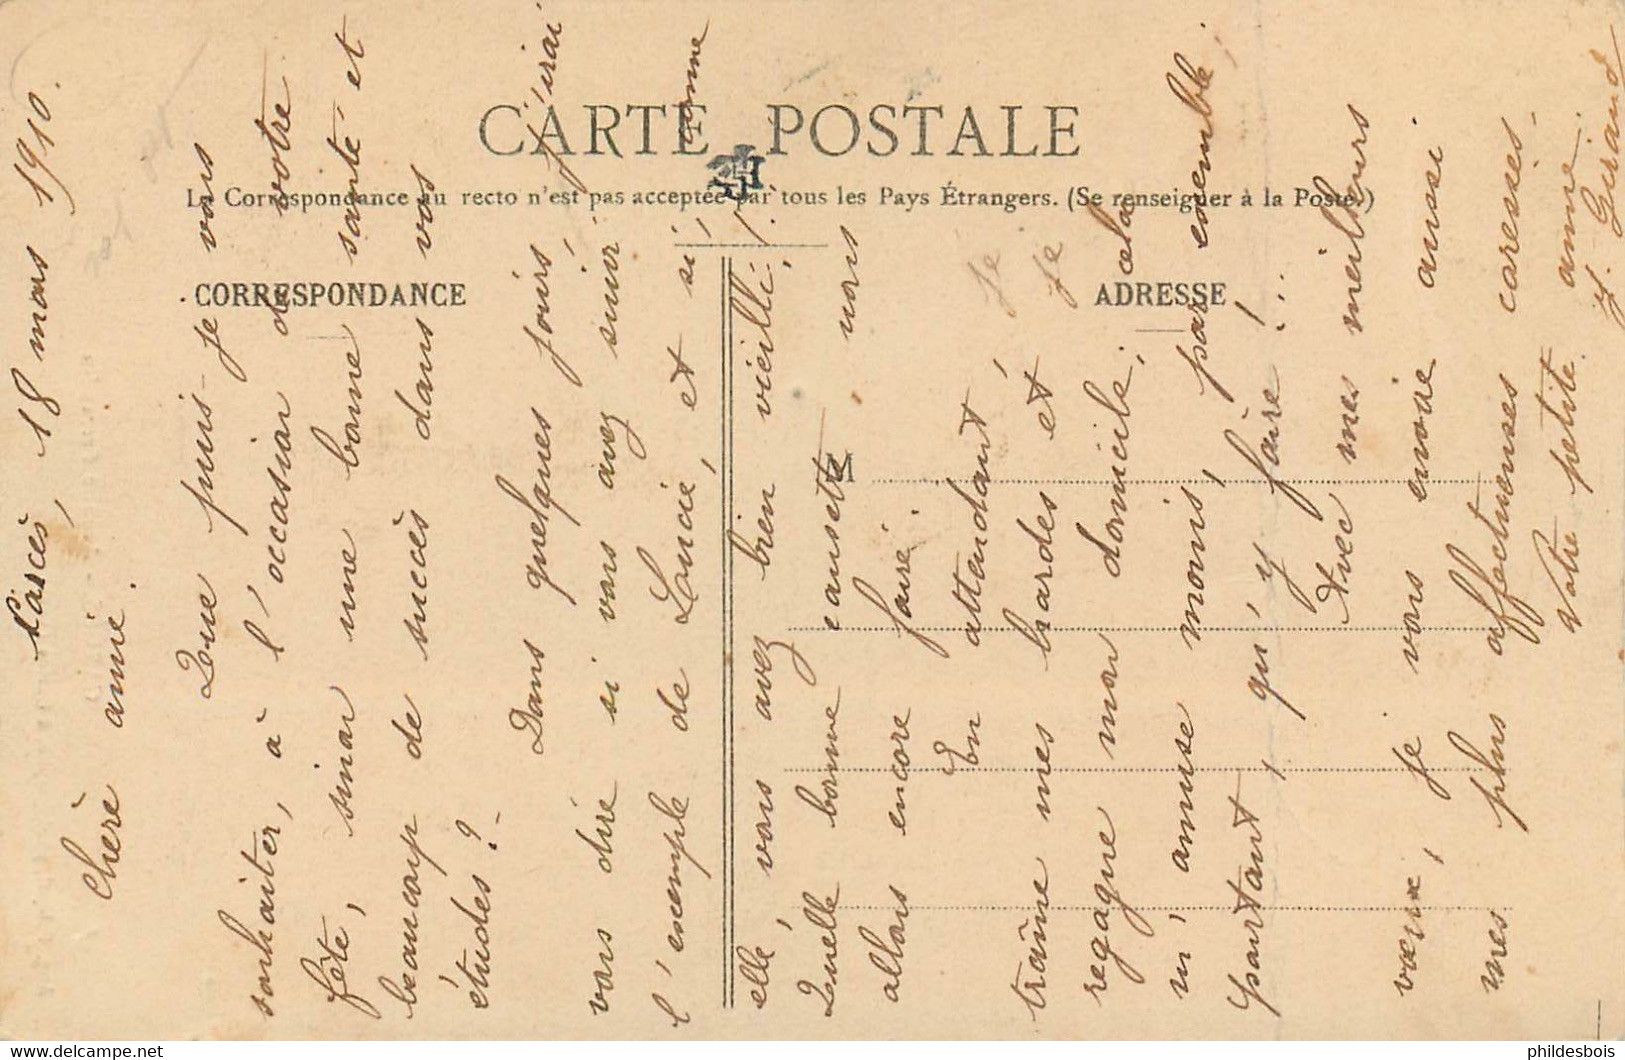 CARTE POSTALE
La Correspondance au recto n'est pas acceptée par tous les Pays Étrangers. (Se renseigner à la Poste.)
CORRESPONDANCE
ADRESSE
M
Carcès, 18 mars 1910.
Chère amie.
Que puis-je vous
souhaiter, à l'occasion de votre
fête, sinon une bonne santé et
beaucoup de succès dans vos
études?
Dans quelques jours, j'irai
vous dire si vous avez suivi
l'exemple de Loucie, et si, comme
elle, vous avez bien vieilli,!
Quelle bonne causette nous
allons encore faire.
En attendant, je
traîne mes hardes et je
regagne mon domicile; cela
m'amuse moins, par exemble,
pourtant, qu'y faire!...
Avec mes meilleurs
vœux, je vous envoie aussi
mes plus affectueuses caresses.
Votre petite amie.
J. Giraud
phildesbois